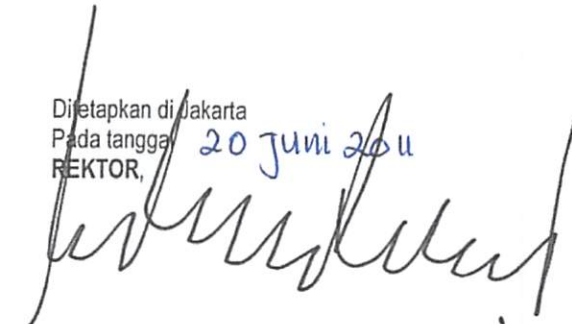 Ditetapkan di Jakarta
Pada tanggal 20 Juni 2011
REKTOR,